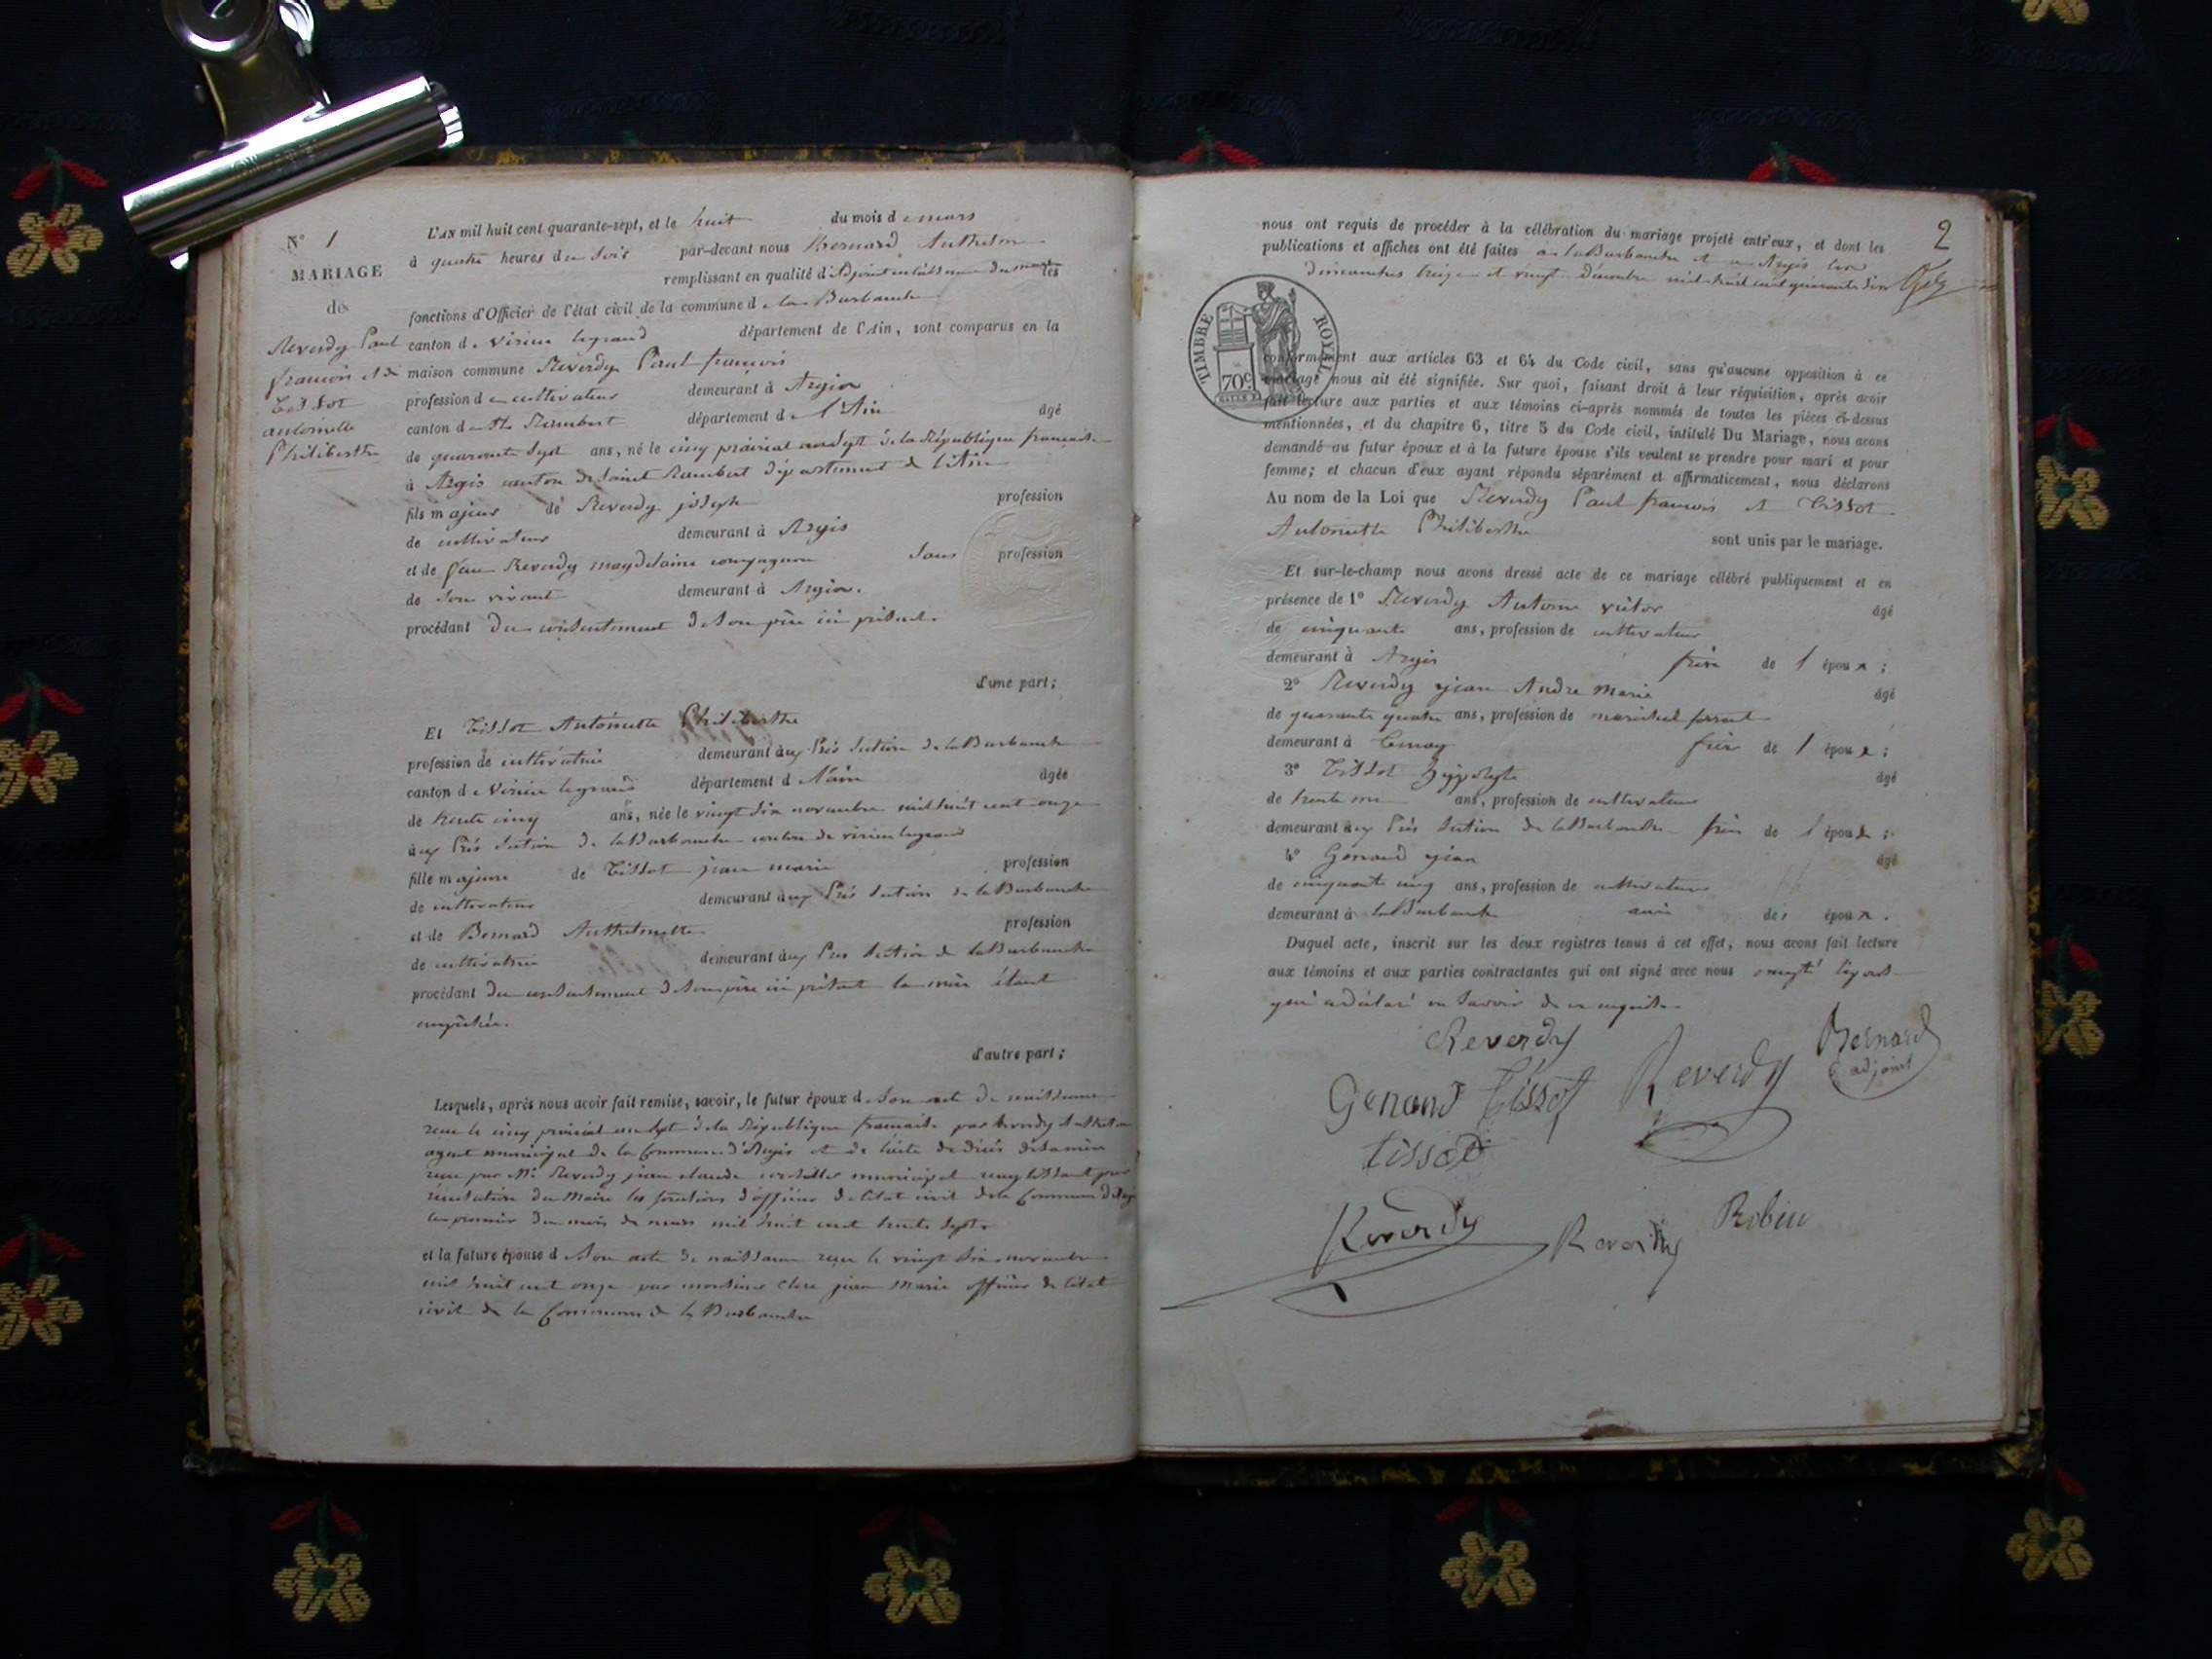 N° 1
MARIAGE
des
Reverdy Paul
françois et de
Tissot
antoinette
Philiberthe
L'AN mil huit cent quarante-sept, et le huit du mois de mars
à quatre heures du soir par-devant nous Bernard Anthelme
remplissant en qualité d'Adjoint en l'absence du maire les
fonctions d'Officier de l'état civil de la commune de la Burbanche
canton de Virieu legrand département de l'Ain, sont comparus en la
maison commune Reverdy Paul françois
profession de cultivateur demeurant à Argis
canton de St Rambert département de l'Ain âgé
de quarante sept ans, né le cinq prairial an sept de la République française
à Argis canton de Saint Rambert département de l'Ain
fils majeur de Reverdy joseph profession
de cultivateur demeurant à Argis
et de feue Reverdy magdelaine sans profession
de son vivant demeurant à Argis.
procédant du consentement de son père ici présent.
d'une part;
Et Tissot Antoinette Philiberthe
profession de cultivatrice demeurant aux Prés Section de la Burbanche
canton de Virieu legrand département de l'ain âgée
de trente cinq ans, née le vingt six novembre mil huit cent onze
aux Prés Section de la Burbanche canton de virieu legrand
fille majeure de Tissot jean marie profession
de cultivateur demeurant aux Prés Section de la Burbanche
et de Bernard Anthelmette profession
de cultivatrice demeurant aux Prés Section de la Burbanche
procédant du consentement de son père ici présent la mère étant
empêchée.
d'autre part;
Lesquels, après nous avoir fait remise, savoir, le futur époux de Son acte de naissance
reçu le cinq prairial an sept de la République française par Reverdy Anthelme
agent municipal de la Commune d'Argis et de l'acte de décès de sa mère
reçu par Mr Reverdy jean claude conseiller municipal remplissant par
du Maire les fonctions d'officier de l'état civil de la Commune d'Argis
le premier du mois de mars mil huit cent trente sept.
et la future épouse de Son acte de naissance reçu le vingt six novembre
mil huit cent onze par monsieur Clerc jean Marie officier de l'état
civil de la Commune de la Burbanche
2
nous ont requis de procéder à la célébration du mariage projeté entr'eux, et dont les
publications et affiches ont été faites à la Burbanche et à Argis les
dimanches treize et vingt décembre mil huit cent quarante six
TIMBRE ROYAL
70c
conformément aux articles 63 et 64 du Code civil, sans qu'aucune opposition à ce
mariage nous ait été signifiée. Sur quoi, faisant droit à leur réquisition, après avoir
fait lecture aux parties et aux témoins ci-après nommés de toutes les pièces ci-dessus
mentionnées, et du chapitre 6, titre 5 du Code civil, intitulé Du Mariage, nous avons
demandé au futur époux et à la future épouse s'ils veulent se prendre pour mari et pour
femme; et chacun d'eux ayant répondu séparément et affirmativement, nous déclarons
Au nom de la Loi que Reverdy Paul françois et Tissot
Antoinette Philiberthe sont unis par le mariage.
Et sur-le-champ nous avons dressé acte de ce mariage célébré publiquement et en
présence de 1° Reverdy Antoine victor âgé
de cinquante ans, profession de cultivateur
demeurant à Argis frère de l époux;
2° Reverdy jean André Marie âgé
de quarante quatre ans, profession de maréchal ferrant
demeurant à Tenay frère de l époux;
3° Tissot hyppolyte âgé
de trente un ans, profession de cultivateur
demeurant aux Prés Section de la Burbanche frère de l épouse;
4° Genand jean âgé
de cinquante cinq ans, profession de cultivateur
demeurant à la Burbanche ami des époux.
Duquel acte, inscrit sur les deux registres tenus à cet effet, nous avons fait lecture
aux témoins et aux parties contractantes qui ont signé avec nous excepté l'épouse
qui a déclaré ne savoir de ce enquise
Reverdy
Bernard
adjoint
Genand Tissot Reverdy
tissot
Reverdy Reverdy Robin